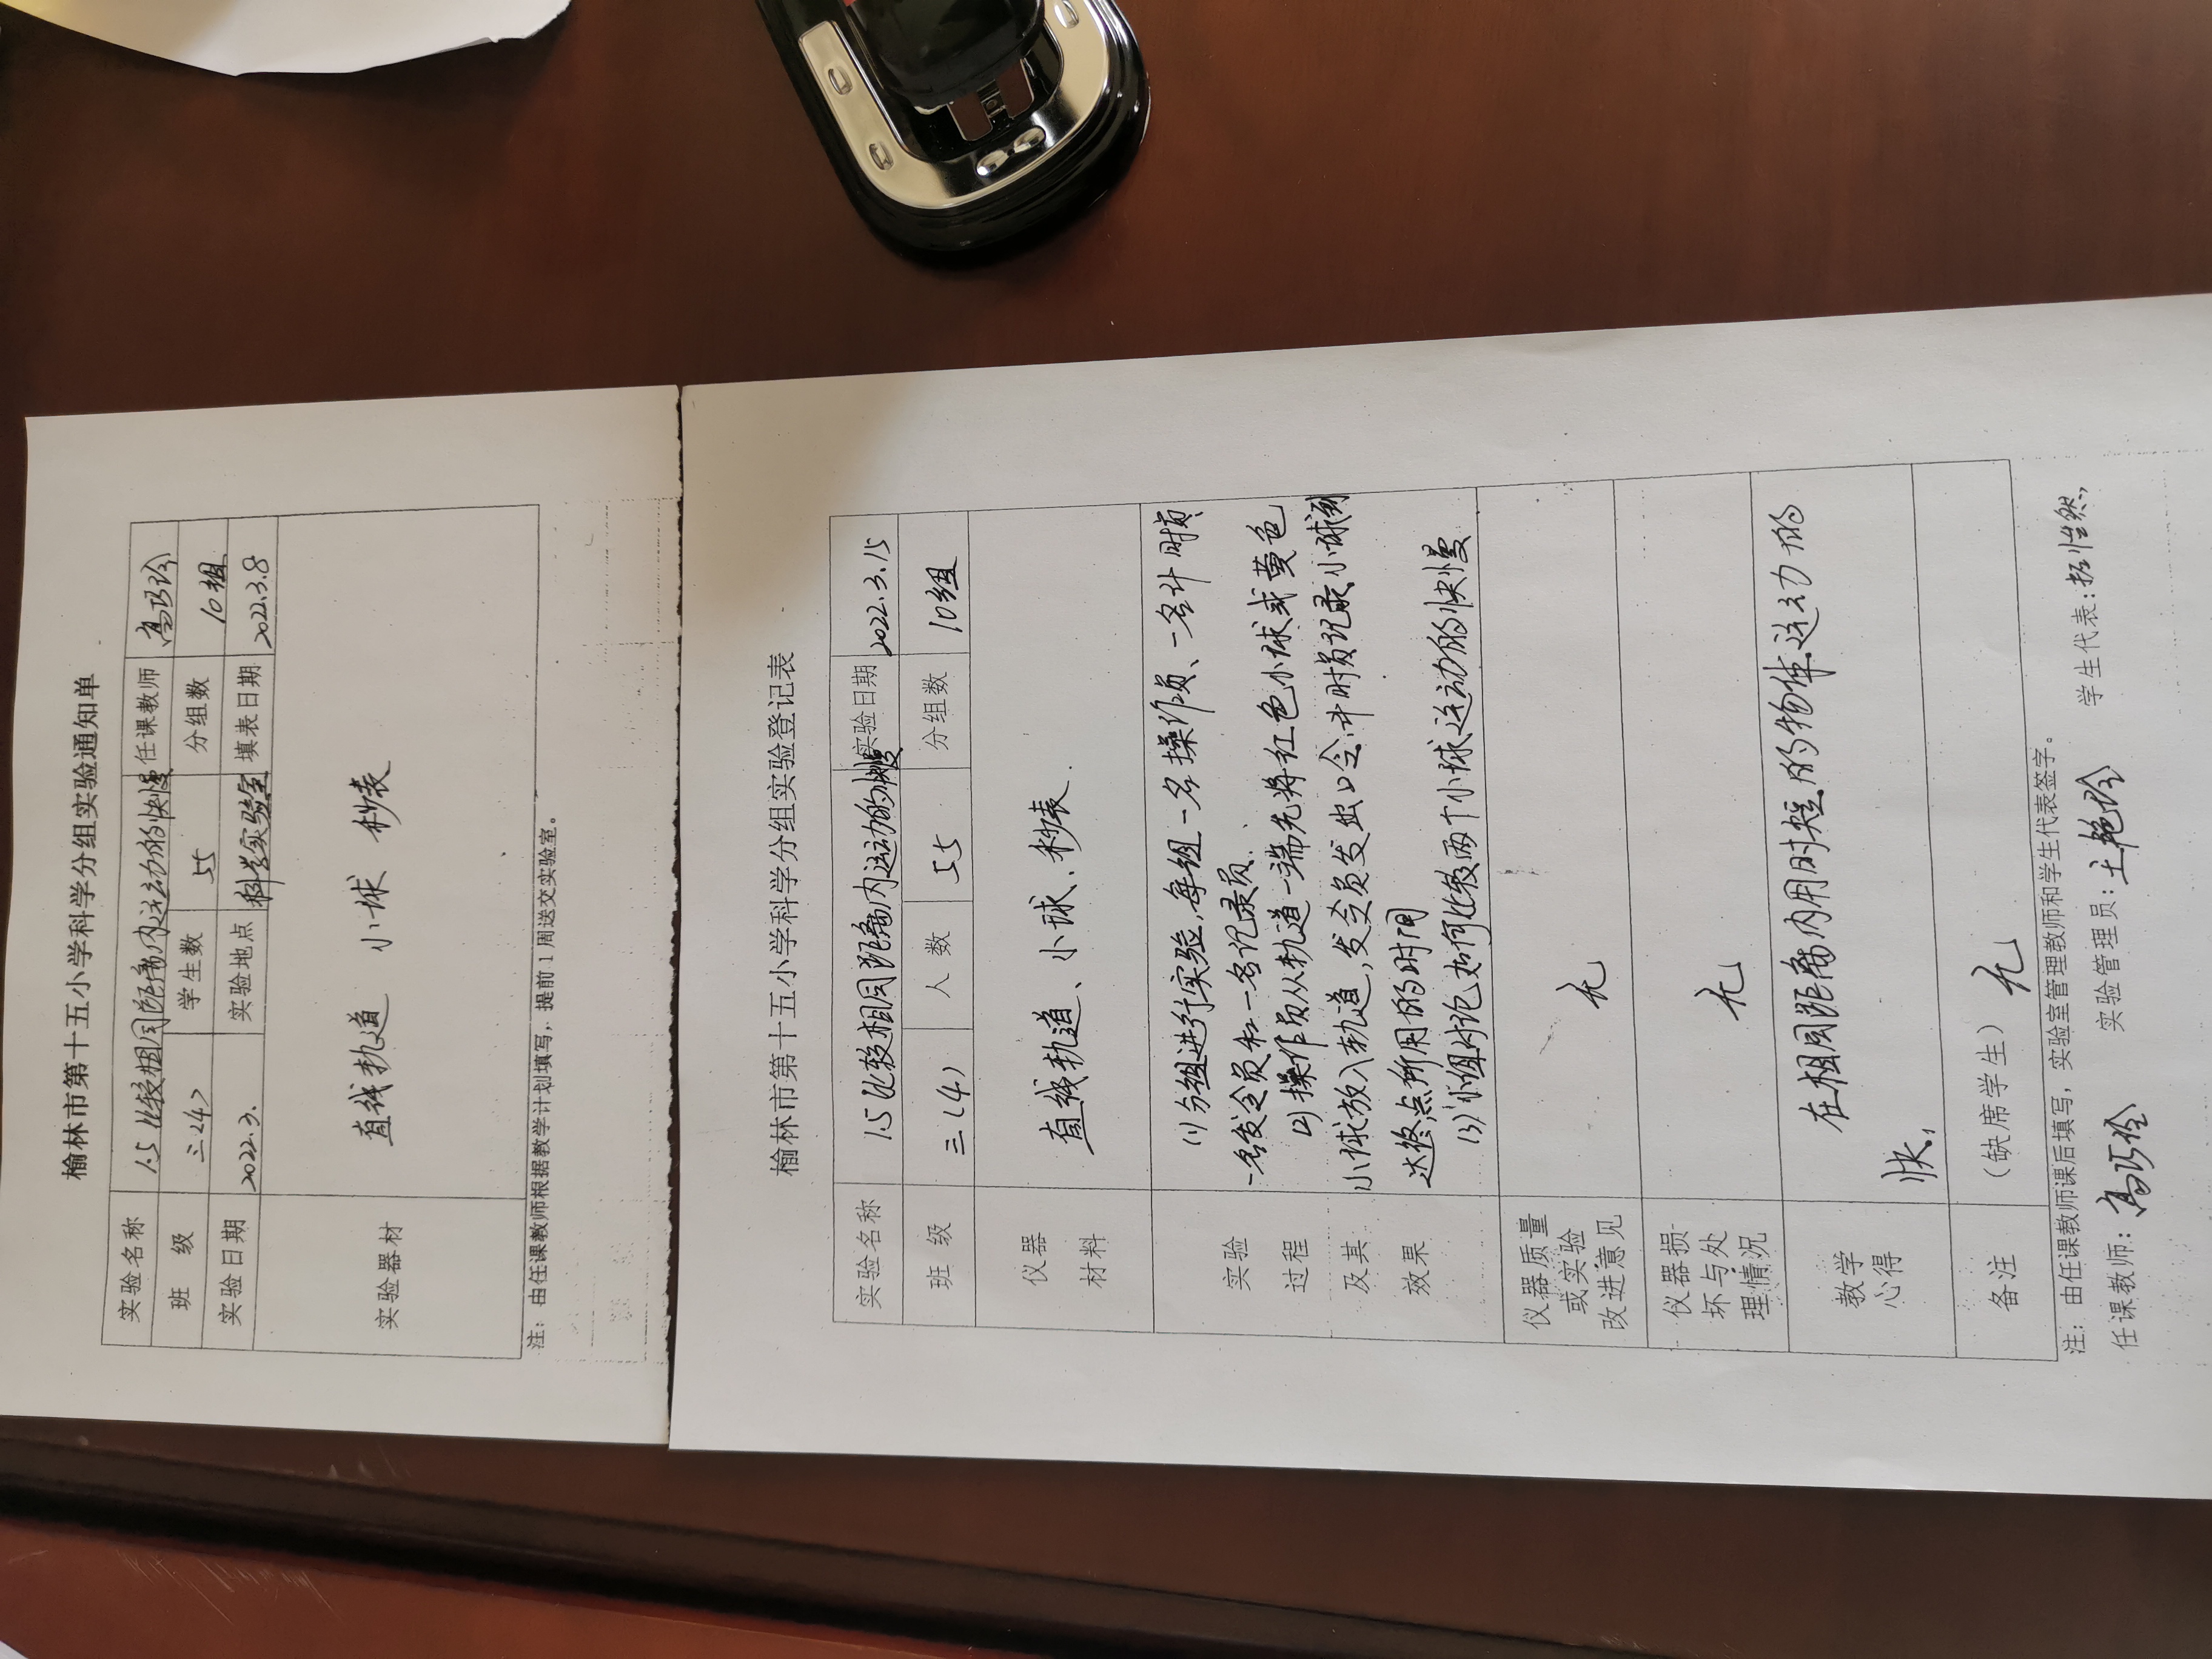 榆林市第十五小学科学分组实验通知单
实验名称 1.5比较相同距离内运动的快慢 任课教师 高巧玲
班 级 三<4> 学生数 55 分组数 10组
实验日期 2022.3. 实验地点 科学实验室 填表日期 2022.3.8
实验器材 直线轨道 小球 秒表
注：由任课教师根据教学计划填写，提前1周送交实验室。
榆林市第十五小学科学分组实验登记表
实验名称 1.5比较相同距离内运动的快慢 实验日期 2022.3.15
班 级 三(4) 人 数 55 分组数 10组
仪器
材料
直线轨道、小球、秒表.
实验
过程
及其
效果
(1)分组进行实验,每组一名操作员、一名计时员
一名发令员和一名记录员.
(2)操作员从轨道一端先将红色小球或黄色
小球放入轨道,发令员发出口令,计时员记录小球到
达终点所用的时间
(3)小组讨论如何比较两个小球运动的快慢
仪器质量
或实验
改进意见
无
仪器损
坏与处
理情况
无
教学
心得
在相同距离内用时短的物体运动的
快。
备注 （缺席学生） 无
注：由任课教师课后填写，实验室管理教师和学生代表签字。
任课教师：高巧玲 实验管理员：王艳玲 学生代表：拓怡然